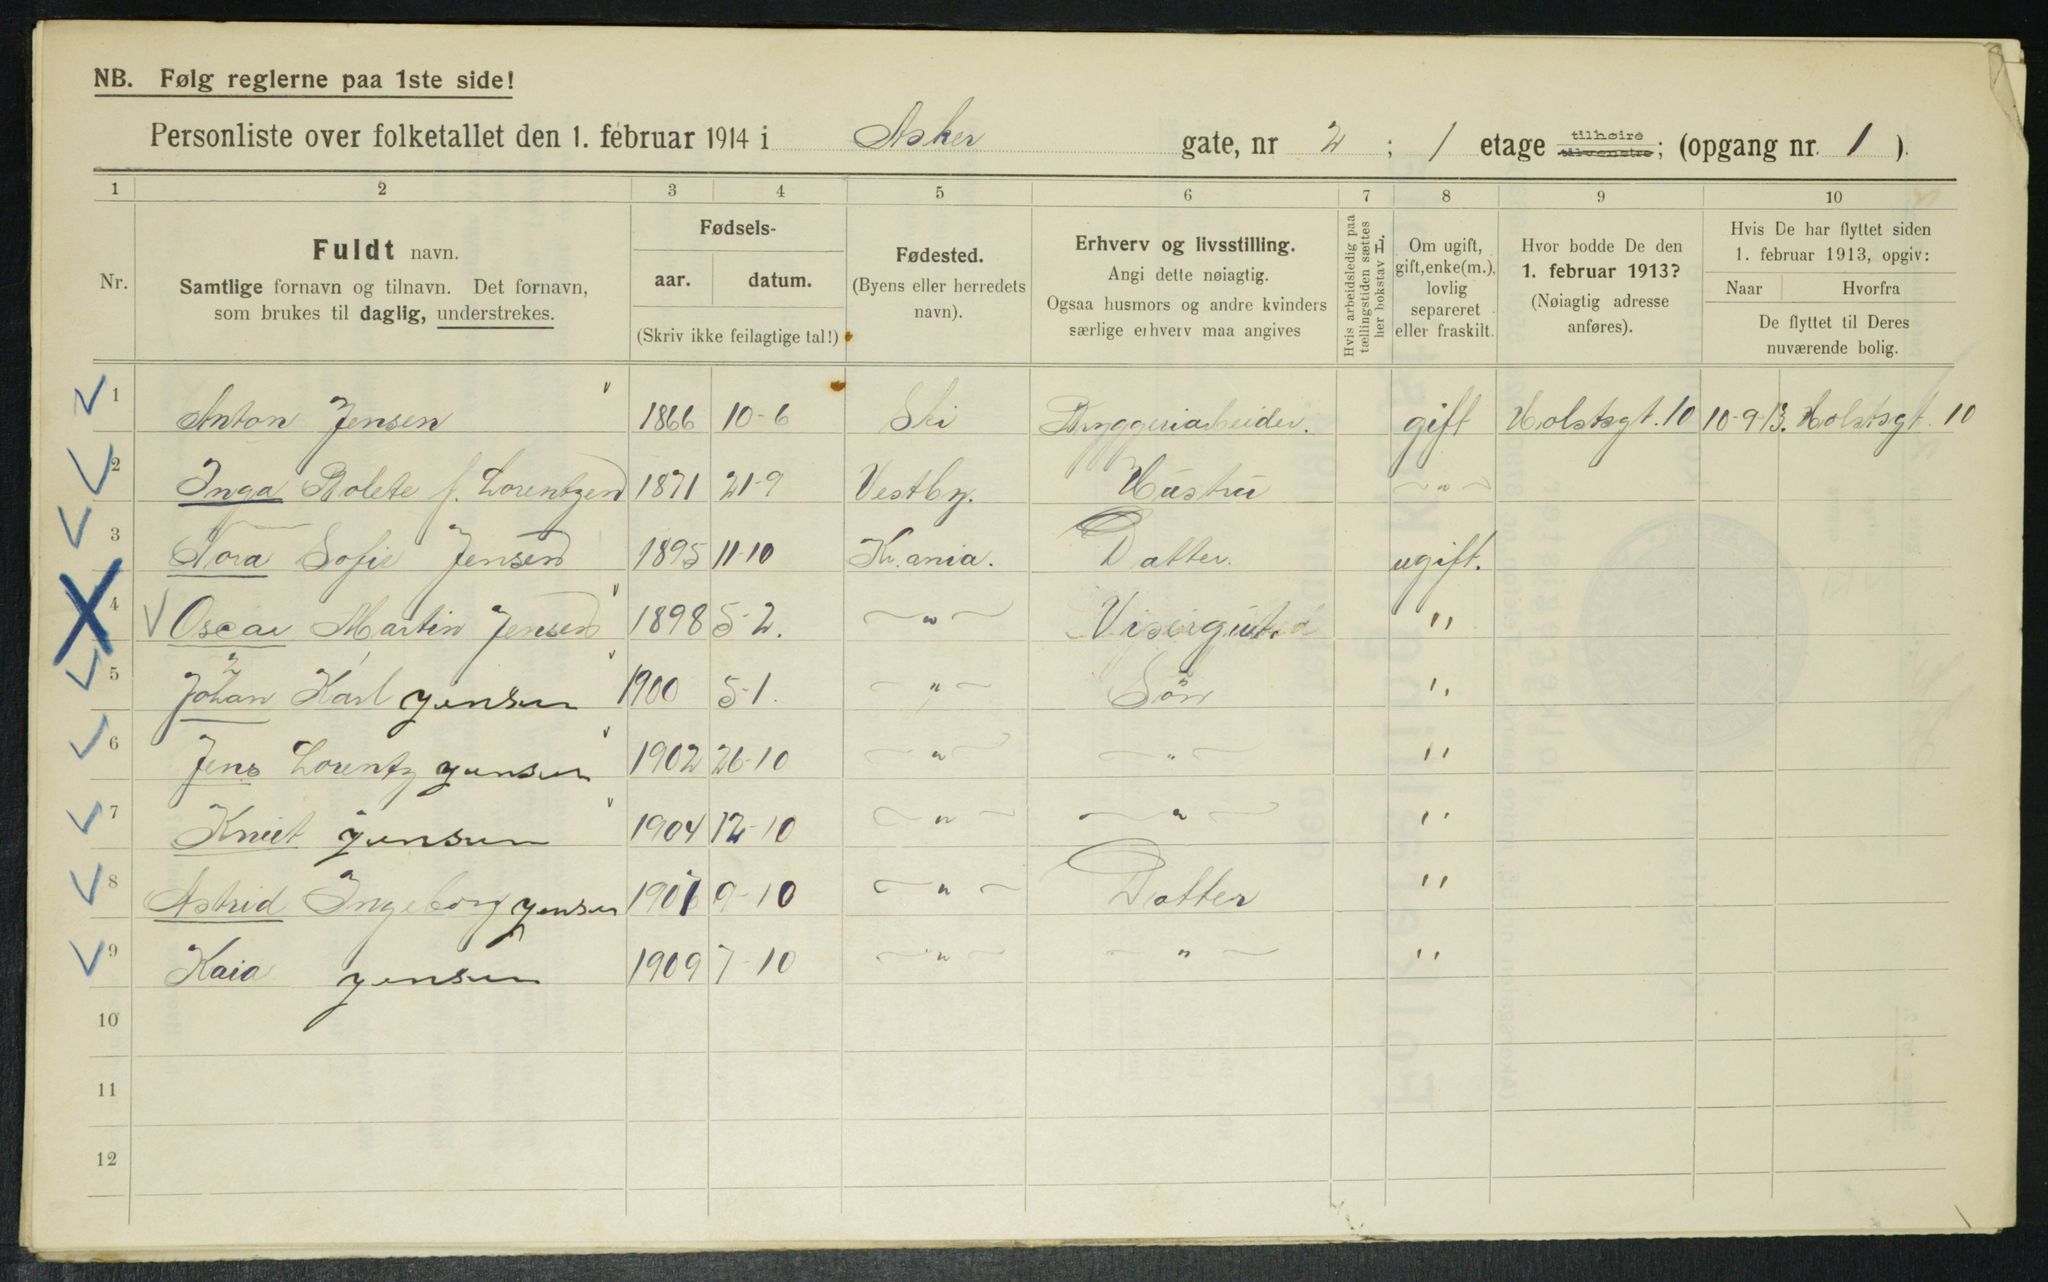 NB. Følg reglerne paa 1ste side!
Personliste over folketallet den 1. februar 1914 i Asker gate, nr 2 ; 1 etage tilhøire tilvenstre; (opgang nr. 1 ).
1 2 3 4 5 6 7 8 9 10
Nr.
Fuldt navn.
Samtlige fornavn og tilnavn. Det fornavn,
som brukes til daglig, understrekes.
Fødsels-
aar. datum.
(Skriv ikke feilagtige tal!)
Fødested.
(Byens eller herredets
navn).
Erhverv og livsstilling.
Angi dette nøiagtig.
Ogsaa husmors og andre kvinders
særlige erhverv maa angives
Hvis arbeidsledig paa
tællingstiden sættes
her bokstav L.
Om ugift,
gift, enke(m.),
lovlig
separeret
eller fraskilt.
Hvor bodde De den
1. februar 1913?
(Nøiagtig adresse
anføres).
Hvis De har flyttet siden
1. februar 1913, opgiv:
Naar Hvorfra
De flyttet til Deres
nuværende bolig.
1 Anton Jensen 1866 10-6 Ski Bryggeriarbeider. gift Holstsgt. 10 10-9-13. Holstsgt. 10
2 Inga Bolete f. Lorentzen 1871 21-9 Vestby. Hustru — " —
3 Nora Sofie Jensen 1895 11-10 Kr.ania. Datter. ugift.
4 Oscar Martin Jensen 1898 5-2. — " — Visergut. "
5 Johan Karl Jensen 1900 5-1. — " — Søn "
6 Jens Lorentz Jensen 1902 26-10 — " — — " — "
7 Knut Jensen 1904 12-10 — " — — " — "
8 Astrid Ingeborg Jensen 1907 9-10 — " — Datter "
9 Kaia Jensen 1909 7-10 — " — — " — "
10
11
12